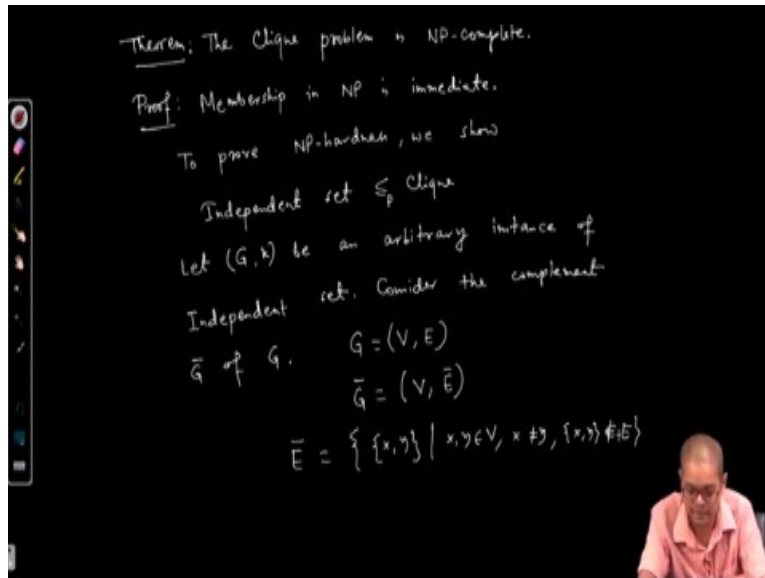 Theorem: The Clique problem is NP-complete.
Proof: Membership in NP is immediate.
To prove NP-hardness, we show
Independent set ≤p Clique
Let (G, k) be an arbitrary instance of
Independent set. Consider the complement
Ḡ of G. G = (V, E)
Ḡ = (V, Ē)
Ē = { {x, y} | x, y ∈ V, x ≠ y, {x, y} ∉ E }